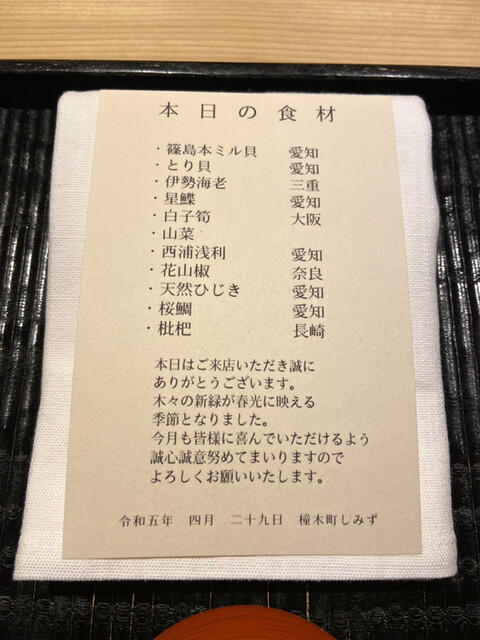 本日の食材
・篠島本ミル貝 愛知
・とり貝 愛知
・伊勢海老 三重
・星鰈 愛知
・白子筍 大阪
・山菜
・西浦浅利 愛知
・花山椒 奈良
・天然ひじき 愛知
・桜鯛 愛知
・枇杷 長崎
本日はご来店いただき誠に
ありがとうございます。
木々の新緑が春光に映える
季節となりました。
今月も皆様に喜んでいただけるよう
誠心誠意努めてまいりますので
よろしくお願いいたします。
令和五年 四月 二十九日 橦木町しみず